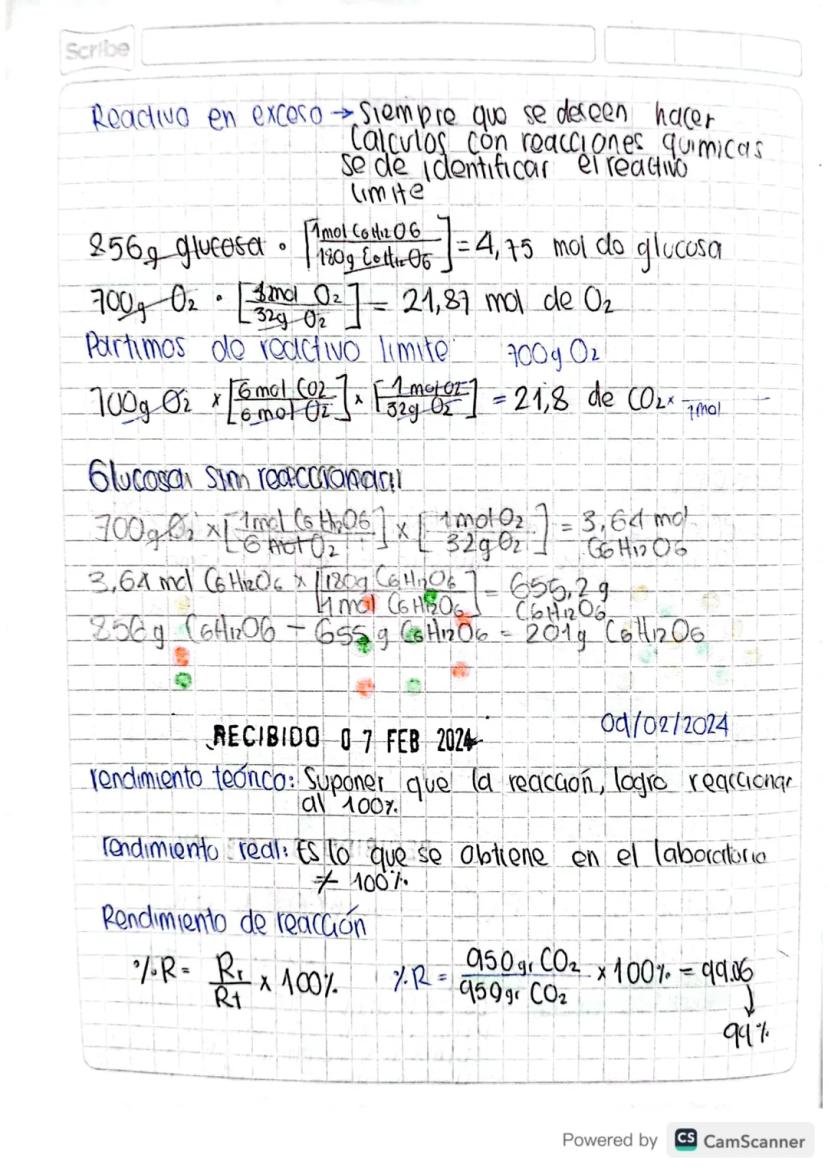 Scribe
Reactivo en exceso → Siempre que se deseen hacer
Calculos con reacciones quimicas
se de identificar el reactivo
limite
856g glucosa · [1mol C6H12O6 / 180g C6H12O6] = 4,75 mol do glucosa
700g O2 · [1mol O2 / 32g O2] = 21,87 mol de O2
Partimos de reactivo limite 700g O2
700g O2 x [6mol CO2 / 6mol O2] x [1mol O2 / 32g O2] = 21,8 de CO2 x 1mol
Glucosa sin reaccionar
700g O2 x [1mol C6H12O6 / 6mol O2] x [1mol O2 / 32g O2] = 3,64 mol C6H12O6
3,64 mol C6H12O6 x [180g C6H12O6 / 1mol C6H12O6] = 655,2g C6H12O6
856g C6H12O6 - 655g C6H12O6 = 201g C6H12O6
RECIBIDO 07 FEB 2024
09/02/2024
rendimiento teónco: Suponer que la reacción, logro reaccionar
al 100%
rendimiento real: Es lo que se obtiene en el laboratorio
≠ 100%
Rendimiento de reacción
%R = Rr / Rt x 100% %R = 950gr CO2 / 959gr CO2 x 100% = 99.06
↓
99%
Powered by CS CamScanner